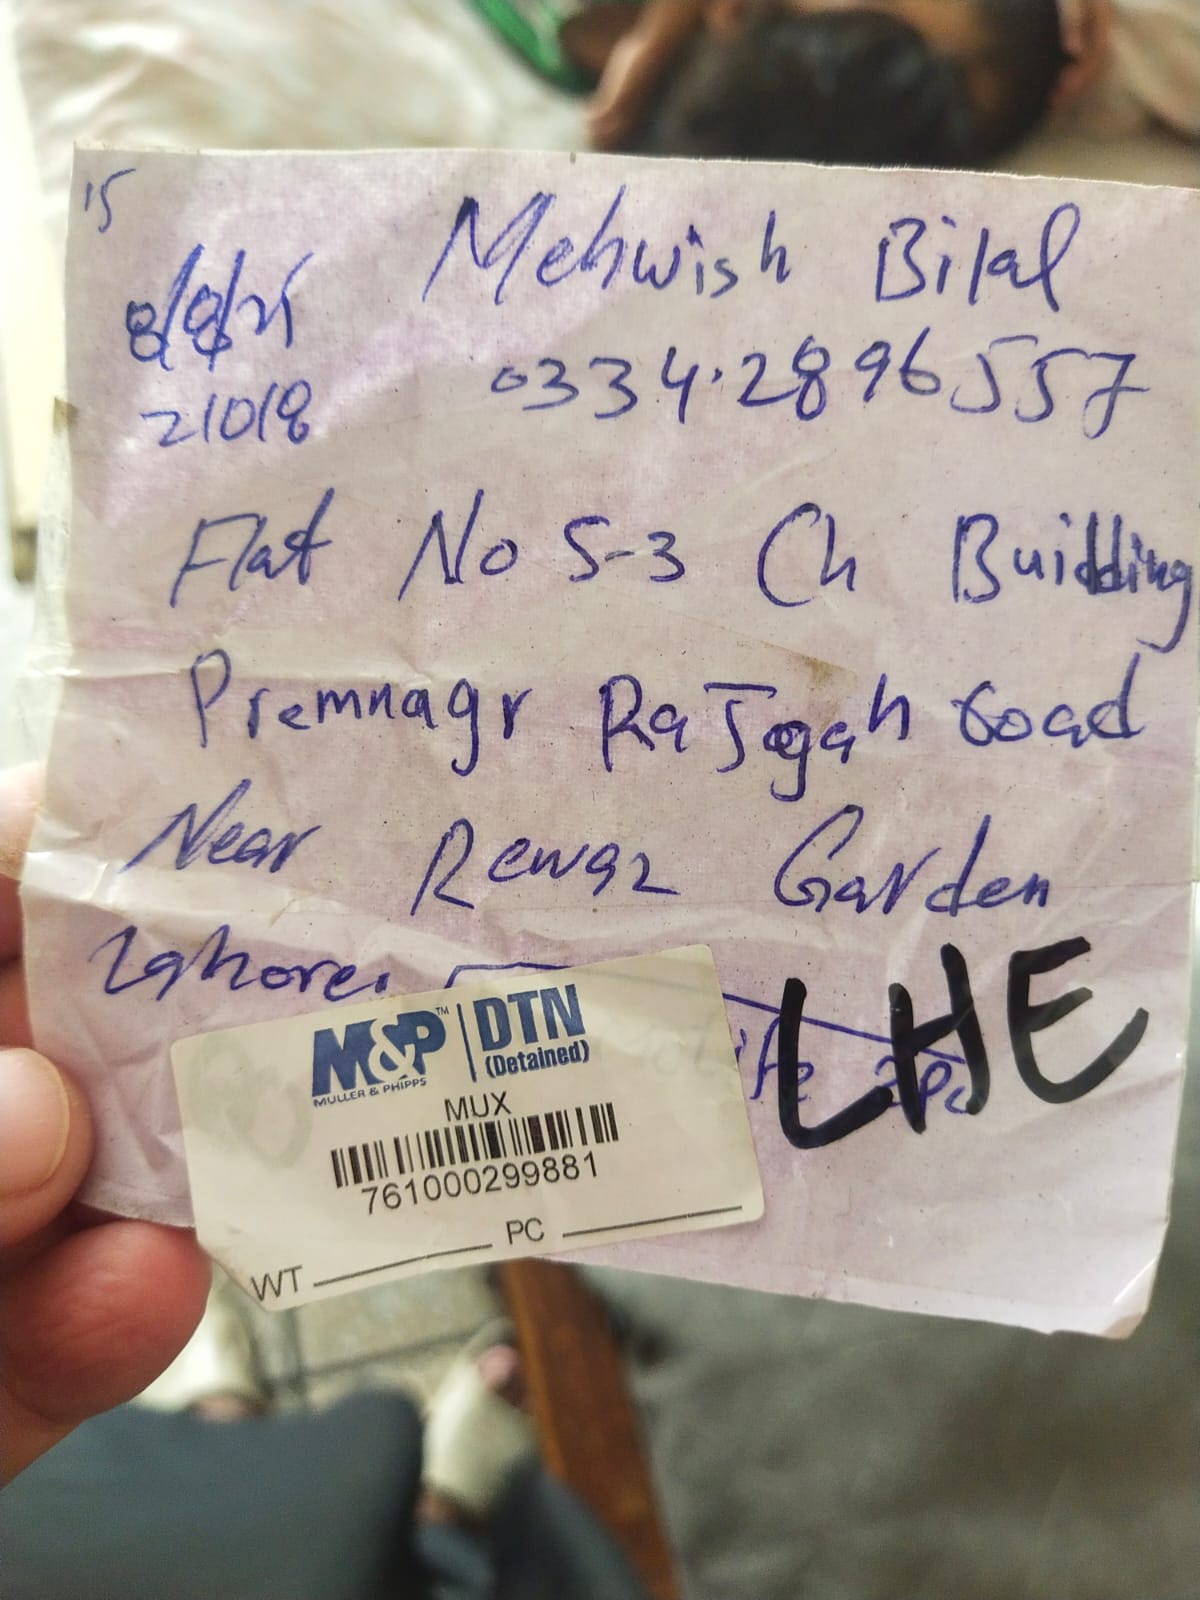 15
Mehwish Bilal
8/8/21
0334-2896557
21018
Flat No S-3 Ch Building
Premnagr Rajogah road
Near Rewaz Garden
Lahore.
LHE
M&P™ DTN
MULLER & PHIPPS (Detained)
MUX
761000299881
PC
WT